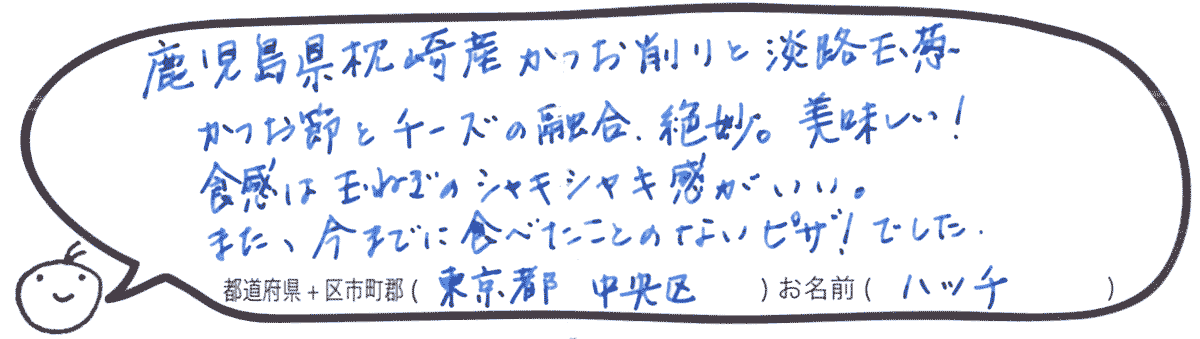 鹿児島県枕崎産かつお削りと淡路玉葱
かつお節とチーズの融合、絶妙。美味しい!
食感は玉ねぎのシャキシャキ感がいい。
また、今までに食べたことのないピザ!でした.
都道府県+区市町郡(東京都 中央区)お名前(ハッチ)